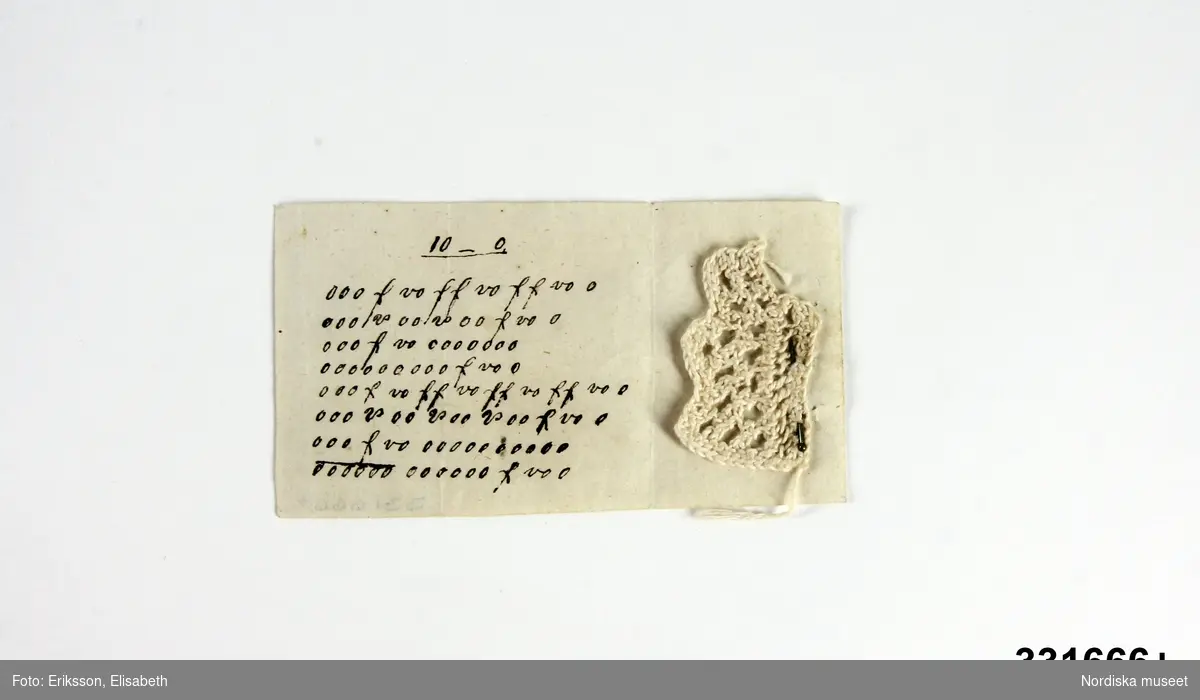 10 – 0.
000 f vo ff vo ff vo 0
000 2 00 2 00 f vo 0
000 f vo 0000000
000000000 f vo 0
000 f vo ff vo ff vo ff vo 0
000 2 00 2 00 2 00 f vo 0
000 f vo 0000000000
000000 000000 f vo 0
331666+
Foto: Eriksson, Elisabeth
Nordiska museet